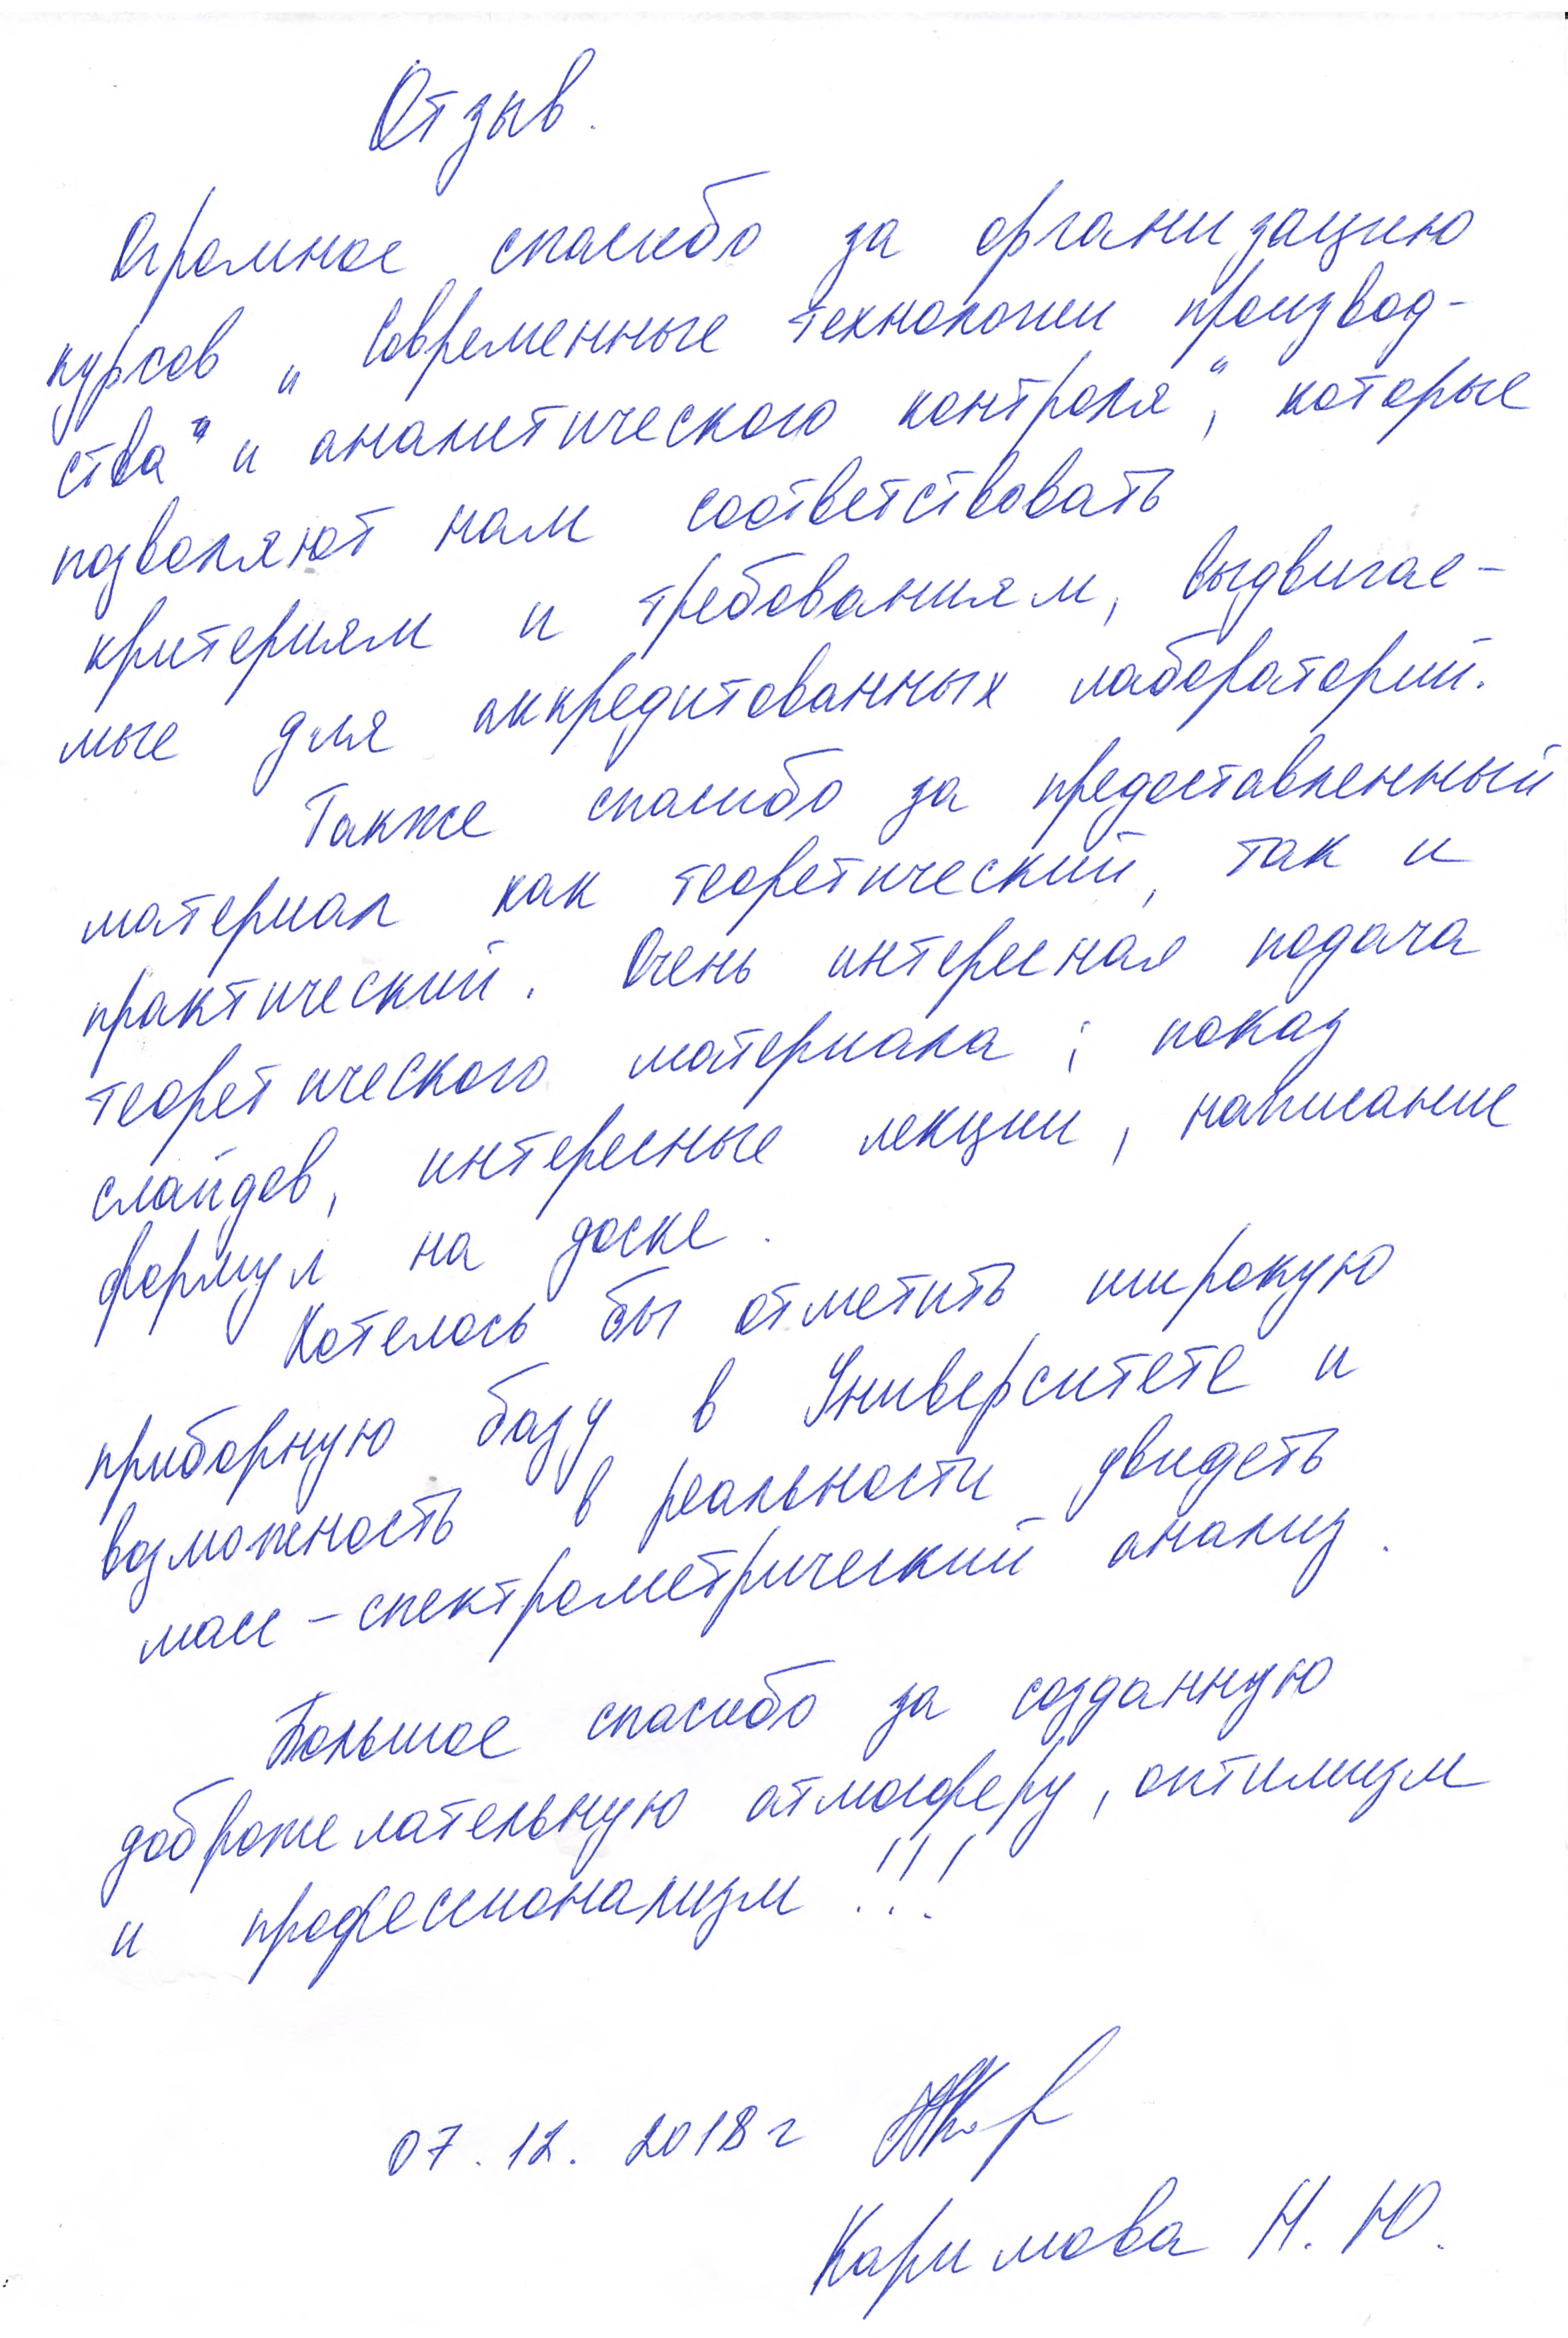 Отзыв.
Огромное спасибо за организацию
курсов „Современные технологии производ-
ства" и аналитического контроля", которые
позволяют нам соответствовать
критериям и требованиям, выдвигае-
мые для аккредитованных лабораторий.
Также спасибо за предоставленный
материал как теоретический, так и
практический. Очень интересная подача
теоретического материала; показ
слайдов, интересные лекции, написание
формул на доске.
Хотелось бы отметить широкую
приборную базу в Университете и
возможность в реальности увидеть
масс-спектрометрический анализ.
Большое спасибо за созданную
доброжелательную атмосферу, оптимизм
и профессионализм!!!
07.12.2018г
Каримова Н.Ю.